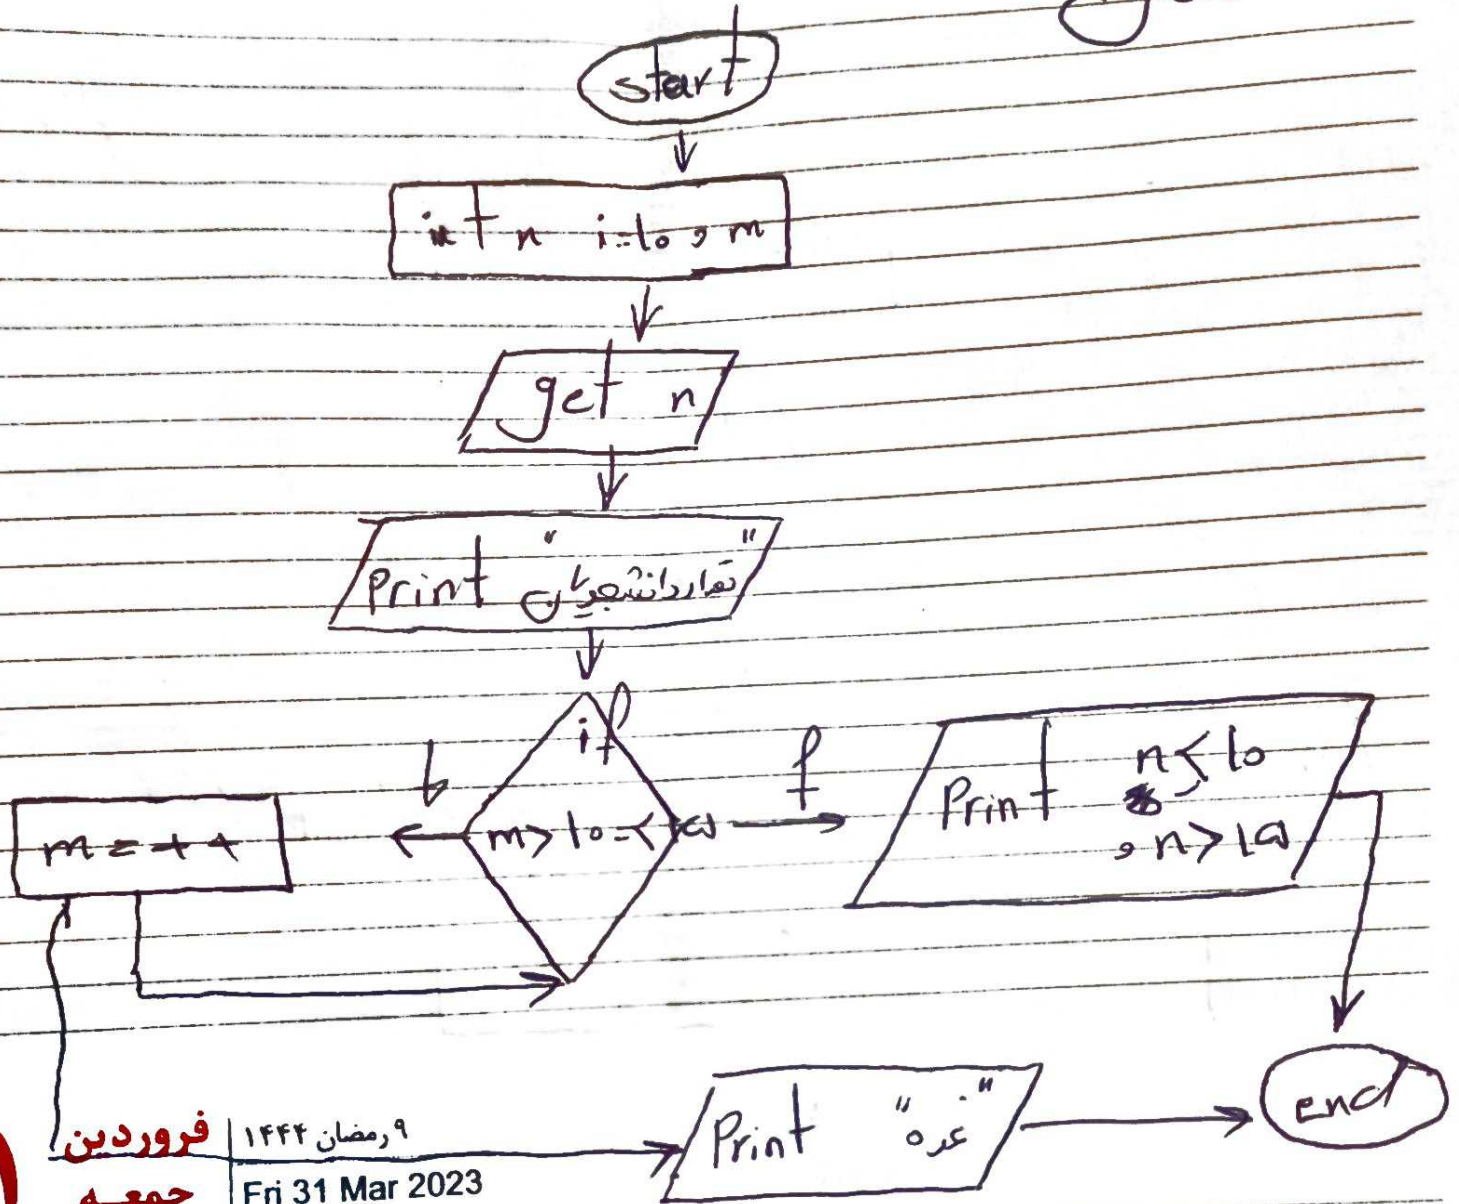 start
int n i=10 , m
get n
Print "تعداد دانشجویان"
if
t
f
m > 10 = < 15
m = ++
Print n < 10
, n > 15
Print "نمره"
end
فروردین
جمعه
۹ رمضان ۱۴۴۴
Fri 31 Mar 2023